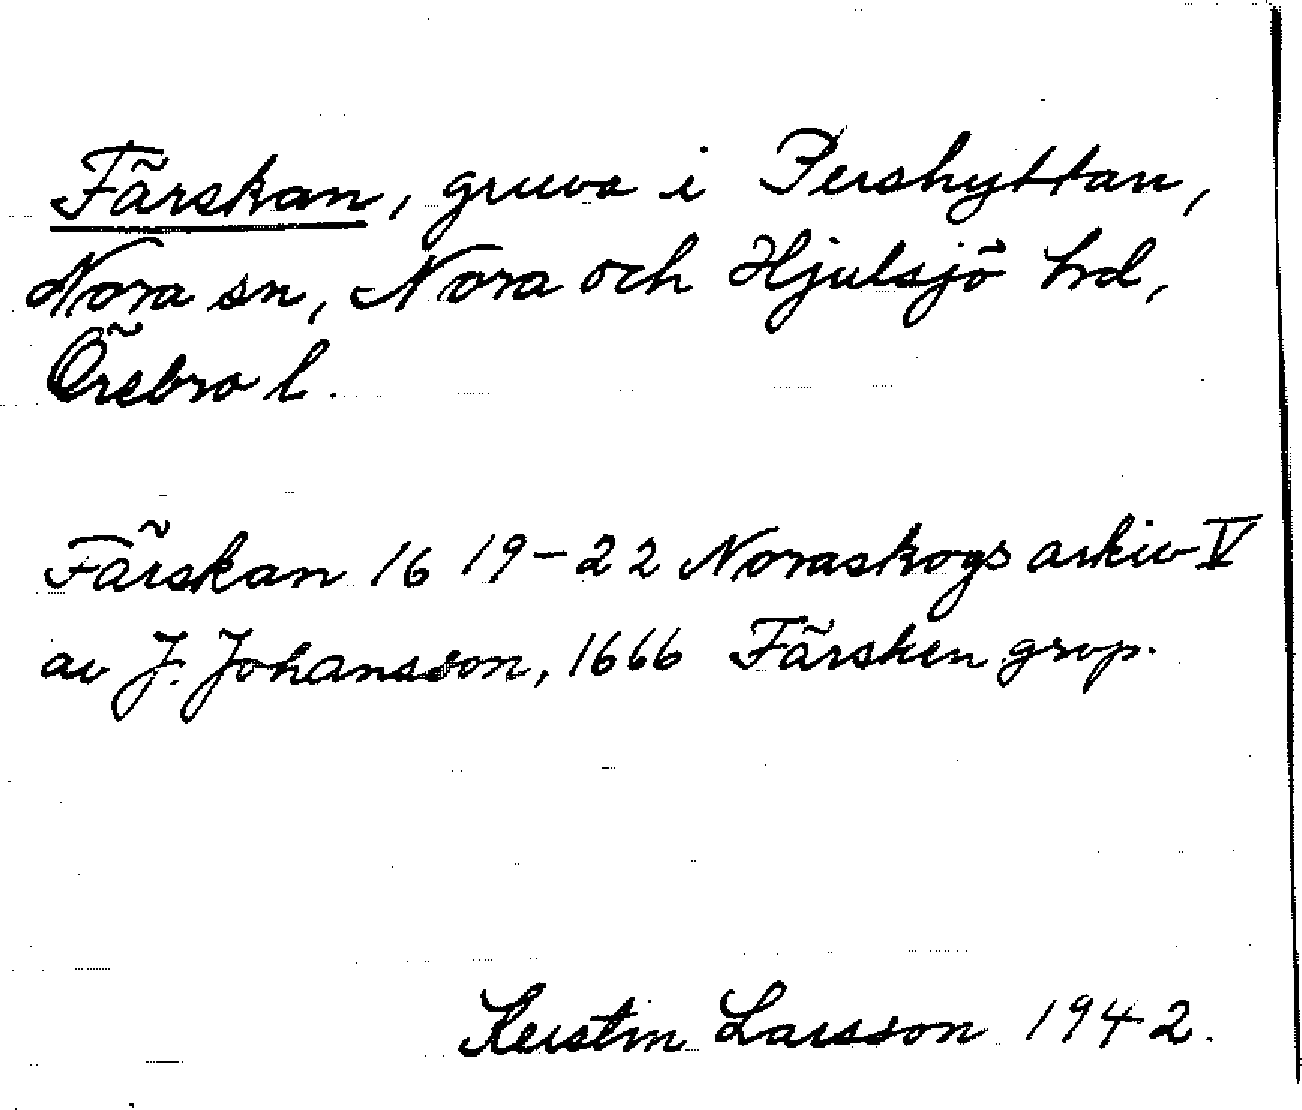 Färskan, gruva i Pershyttan,
Nora sn, Nora och Hjulsjö hrd,
Örebro l.
Färskan 16 19-22 Noraskogs arkiv V
av J. Johansson, 1666 Färsken grvp.
Kerstin Larsson 1942.